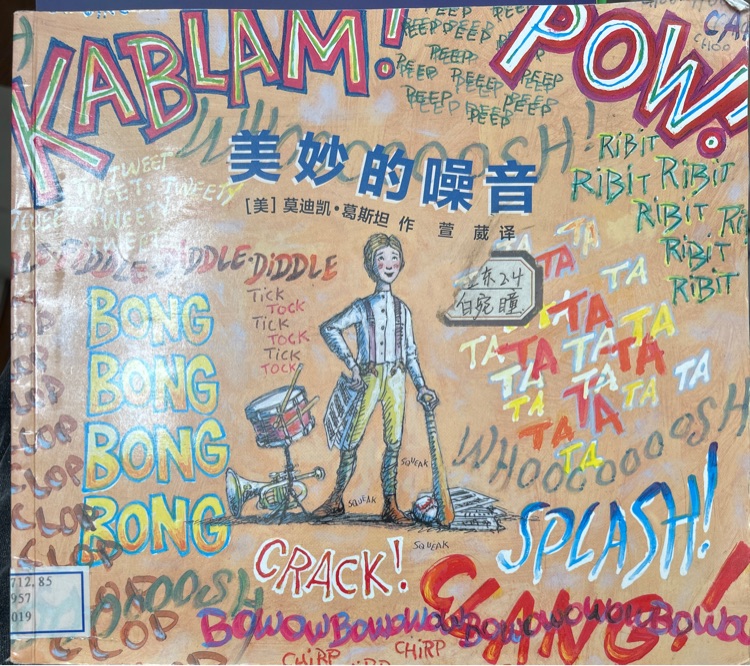 KABLAM!
POW!
PEEP PEEP
PEEP PEEP
PEEP
PEEP PEEP PEEP
PEEP PEEP
PEEP
CHOP
WHOOOOOOSH!
美妙的噪音
[美] 莫迪凯·葛斯坦 作 萱 葳 译
RiBiT
RiBiT RiBiT
RiBiT
RiBiT
RiBiT
TWEET
TWEET·TWEETY
TWEETY
TWEET
DIDDLE·DIDDLE·DIDDLE
TICK
TOCK
TICK
TOCK
TICK
TOCK
BONG
BONG
BONG
BONG
TA TA
TA TA TA
TA TA TA
TA TA TA
TA TA
TA TA
TA
WHOOOOOOOSH
SQUEAK
SQUEAK
SQUEAK
CLOP
CLOP
CLOP
CLOP
SPLASH!
CRACK!
CLANG!
712.85
957
019
CLOP
BOWOWBOWOWOWOWBOWOWOWOWBOWO
CHiRP
CHiRP